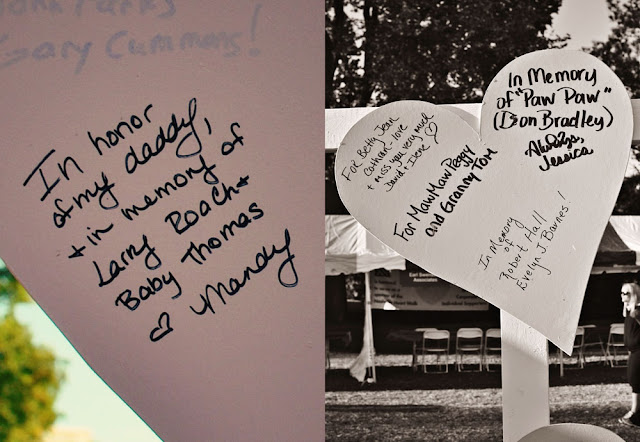 Gary Cummons!
In honor
of my daddy,
+ in memory of
Larry Roach +
Baby Thomas
♡ Mandy
In Memory
of "Paw Paw"
(Don Bradley)
Always,
Jessica
For Betty Jean
Cothran - love
+ miss you very much
David + Irene ♡
For MawMaw Peggy
and Granny Tom
In Memory
of
Robert Hall
Evelyn J. Barnes!